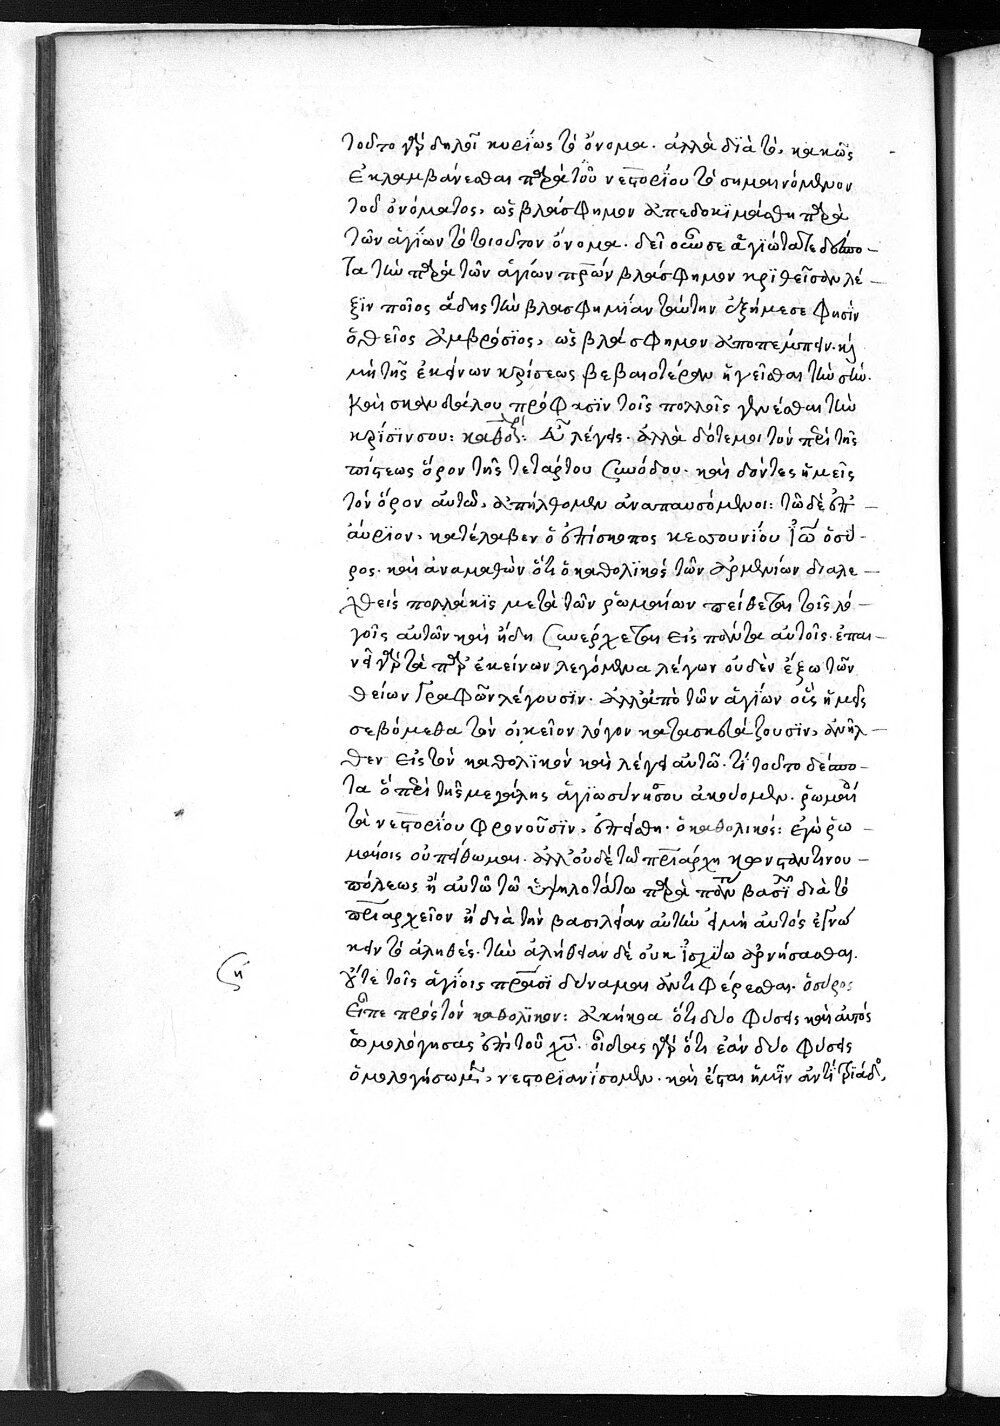 τοῦτο γὰρ δηλοῖ κυρίως τὸ ὄνομα. ἀλλὰ διὰ τὸ, κακῶς
ἐκλαμβάνεσθαι παρὰ τοῦ νεστορίου τὸ σημαινόμενον
τοῦ ὀνόματος, ὡς βλάσφημον ἀπεδοκιμάσθη παρὰ
τῶν ἁγίων τὸ τοιοῦτον ὄνομα. δεῖ οὖν σε ἁγιώτατε δέσπο-
τα τὴν παρὰ τῶν ἁγίων πρῶν βλάσφημον κριθεῖσαν λέ-
ξιν ποῖος ἅδης τὴν βλασφημίαν ταύτην ἐξήμεσε φησὶν
ὁ θεῖος ἀμβρόσιος, ὡς βλάσφημον ἀποπέμπειν. κὶ
μὴ τῆς ἐκείνων κρίσεως βεβαιοτέραν ἡγεῖσθαι τὴν σήν.
καὶ σκανδάλου πρόφασιν τοῖς πολλοῖς γενέσθαι τὴν
κρίσιν σου: καθολ: εὖ λέγεις. ἀλλὰ δότε μοι τὸν περὶ τῆς
πίστεως ὅρον τῆς τετάρτου συνόδου. καὶ δόντες ἡμεῖς
τὸν ὅρον αὐτῶ, ἀπήλθομεν ἀναπαυσόμενοι: τῶ δὲ ἐπ -
αύριον, κατέλαβεν ὁ ἐπίσκοπος κεσουνίου ἰω ὁ σύ -
ρος. καὶ ἀναμαθὼν ὅτι ὁ καθολικὸς τῶν ἀρμενίων διαλε -
χθεὶς πολλάκις μετὰ τῶν ῥωμαίων πείθεται τοῖς λό -
γοις αὐτῶν καὶ ἤδη συνέρχεται εἰς πάντα αὐτοῖς. ἐπαι -
νεῖ γὰρ τὰ παρ ἐκείνων λεγόμενα λέγων οὐδὲν ἔξω τῶν
θείων γραφῶν λέγουσιν. ἀλλ ἀπὸ τῶν ἁγίων οὓς ἡμεῖς
σεβόμεθα τὸν οἰκεῖον λόγον κατασκευάζουσιν, ἀνῆλ -
θεν εἰς τὸν καθολικὸν καὶ λέγει αὐτῶ. τί τοῦτο δέσπο -
τα ὃ περὶ τῆς μεγάλης ἁγιωσύνης σου ἀκούομεν. ῥωμαῖοι
τὰ νεστορίου φρονοῦσιν, ἐπείσθη. ὁ καθολικός: ἐγὼ ῥω -
μαίοις οὐ πείθωμαι. ἀλλ οὐδὲ τῶ πριάρχη κωνσταντινου -
πόλεως ἢ αὐτῶ τῶ ὑψηλοτάτω παρὰ πάντων βασῖ διὰ τὸ
πριαρχεῖον ἢ διὰ τὴν βασιλείαν αὐτῶν εἰ μὴ αὐτὸς ἐγνώ
κειν τὸ ἀληθές. τὴν ἀλήθειαν δὲ οὐκ ἰσχύω ἀρνήσασθαι.
οὔτε τοῖς ἁγίοις πρασι δύναμαι ἀντιφέρεσθαι. ὁ σύρος
εἶπε πρὸς τὸν καθολικὸν: ἀκήκοα ὅτι δύο φύσεις καὶ αὐτὸς
ὡμολόγησας ἐπὶ τοῦ χυ. οἶδας γὰρ ὅτι ἐὰν δύο φύσεις
ὁμολογήσωμεν, νεστοριανίσομεν. καὶ ἔσται ἡμῖν ἀντὶ τριάδ,